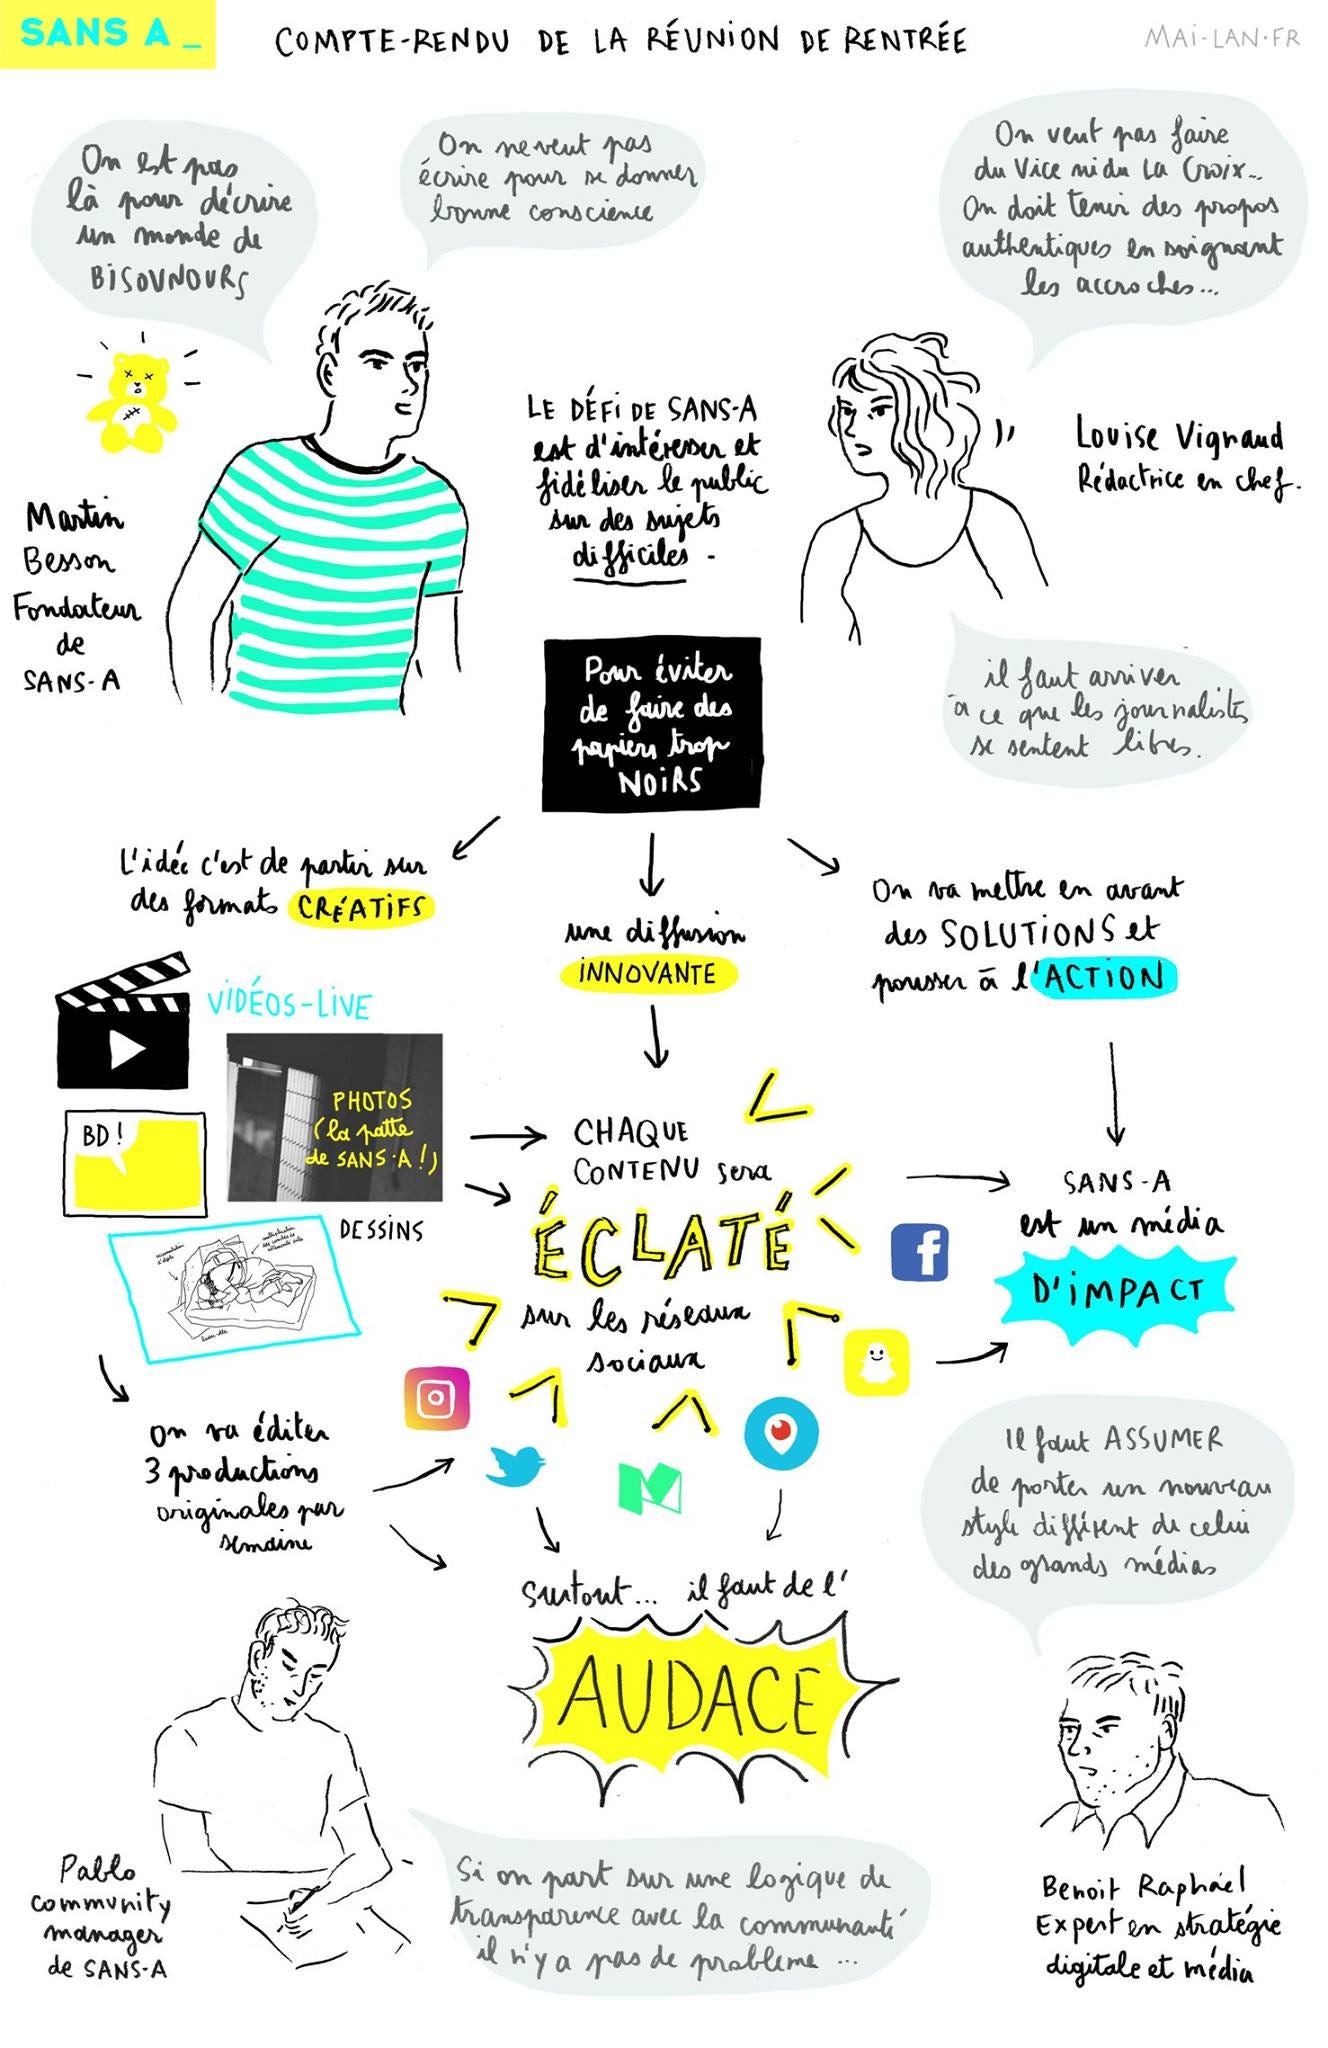 SANS A _
COMPTE-RENDU DE LA RÉUNION DE RENTRÉE
MAI-LAN.FR
On est pas
là pour décrire
un monde de
BISOUNOURS
On ne veut pas
écrire pour se donner
bonne conscience
On veut pas faire
du Vice ni du La Croix...
On doit tenir des propos
authentiques en soignant
les accroches...
Martin
Besson
Fondateur
de
SANS-A
LE DÉFI DE SANS-A
est d'intéresser et
fidéliser le public
sur des sujets
difficiles -
Louise Vignaud
Rédactrice en chef.
il faut arriver
à ce que les journalistes
se sentent libres.
Pour éviter
de faire des
papiers trop
NOIRS
L'idée c'est de partir sur
des formats CRÉATIFS
une diffusion
INNOVANTE
On va mettre en avant
des SOLUTIONS et
pousser à l'ACTION
VIDÉOS-LIVE
PHOTOS
(la patte
de SANS-A !)
BD !
DESSINS
CHAQUE
CONTENU sera
ÉCLATÉ
sur les réseaux
sociaux
SANS-A
est un média
D'IMPACT
On va éditer
3 productions
originales par
semaine
Il faut ASSUMER
de porter un nouveau
style différent de celui
des grands médias
Surtout... il faut de l'
AUDACE
Pablo
community
manager
de SANS-A
Si on part sur une logique de
transparence avec la communauté
il n'y a pas de problème ...
Benoit Raphaël
Expert en stratégie
digitale et média